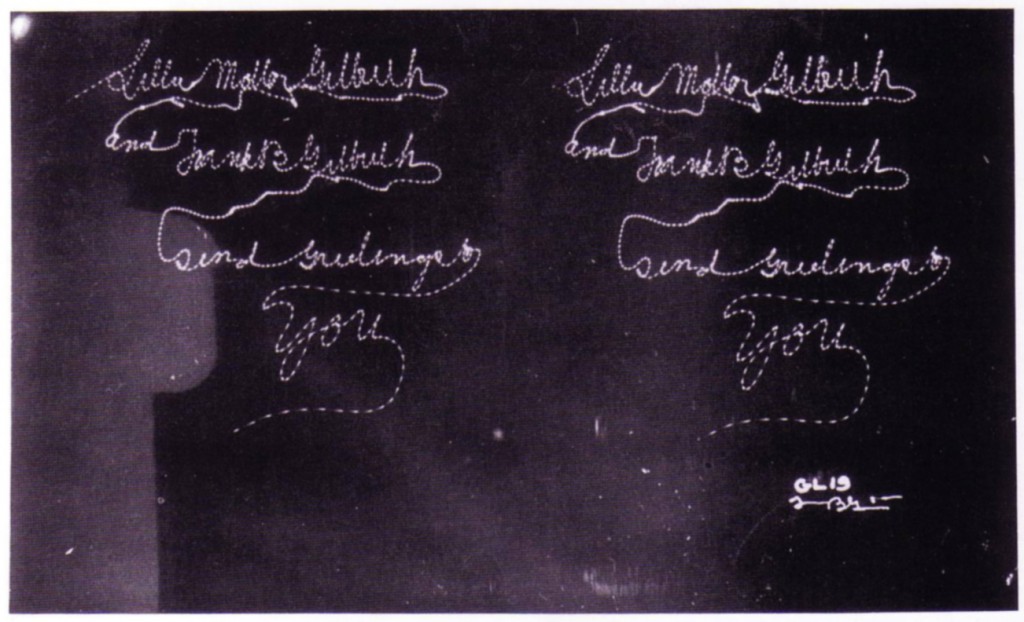 Lillie Moller Gilbreth
and Frank B Gilbreth
send Greetings to
you
Lillie Moller Gilbreth
and Frank B Gilbreth
send Greetings to
you
GL19